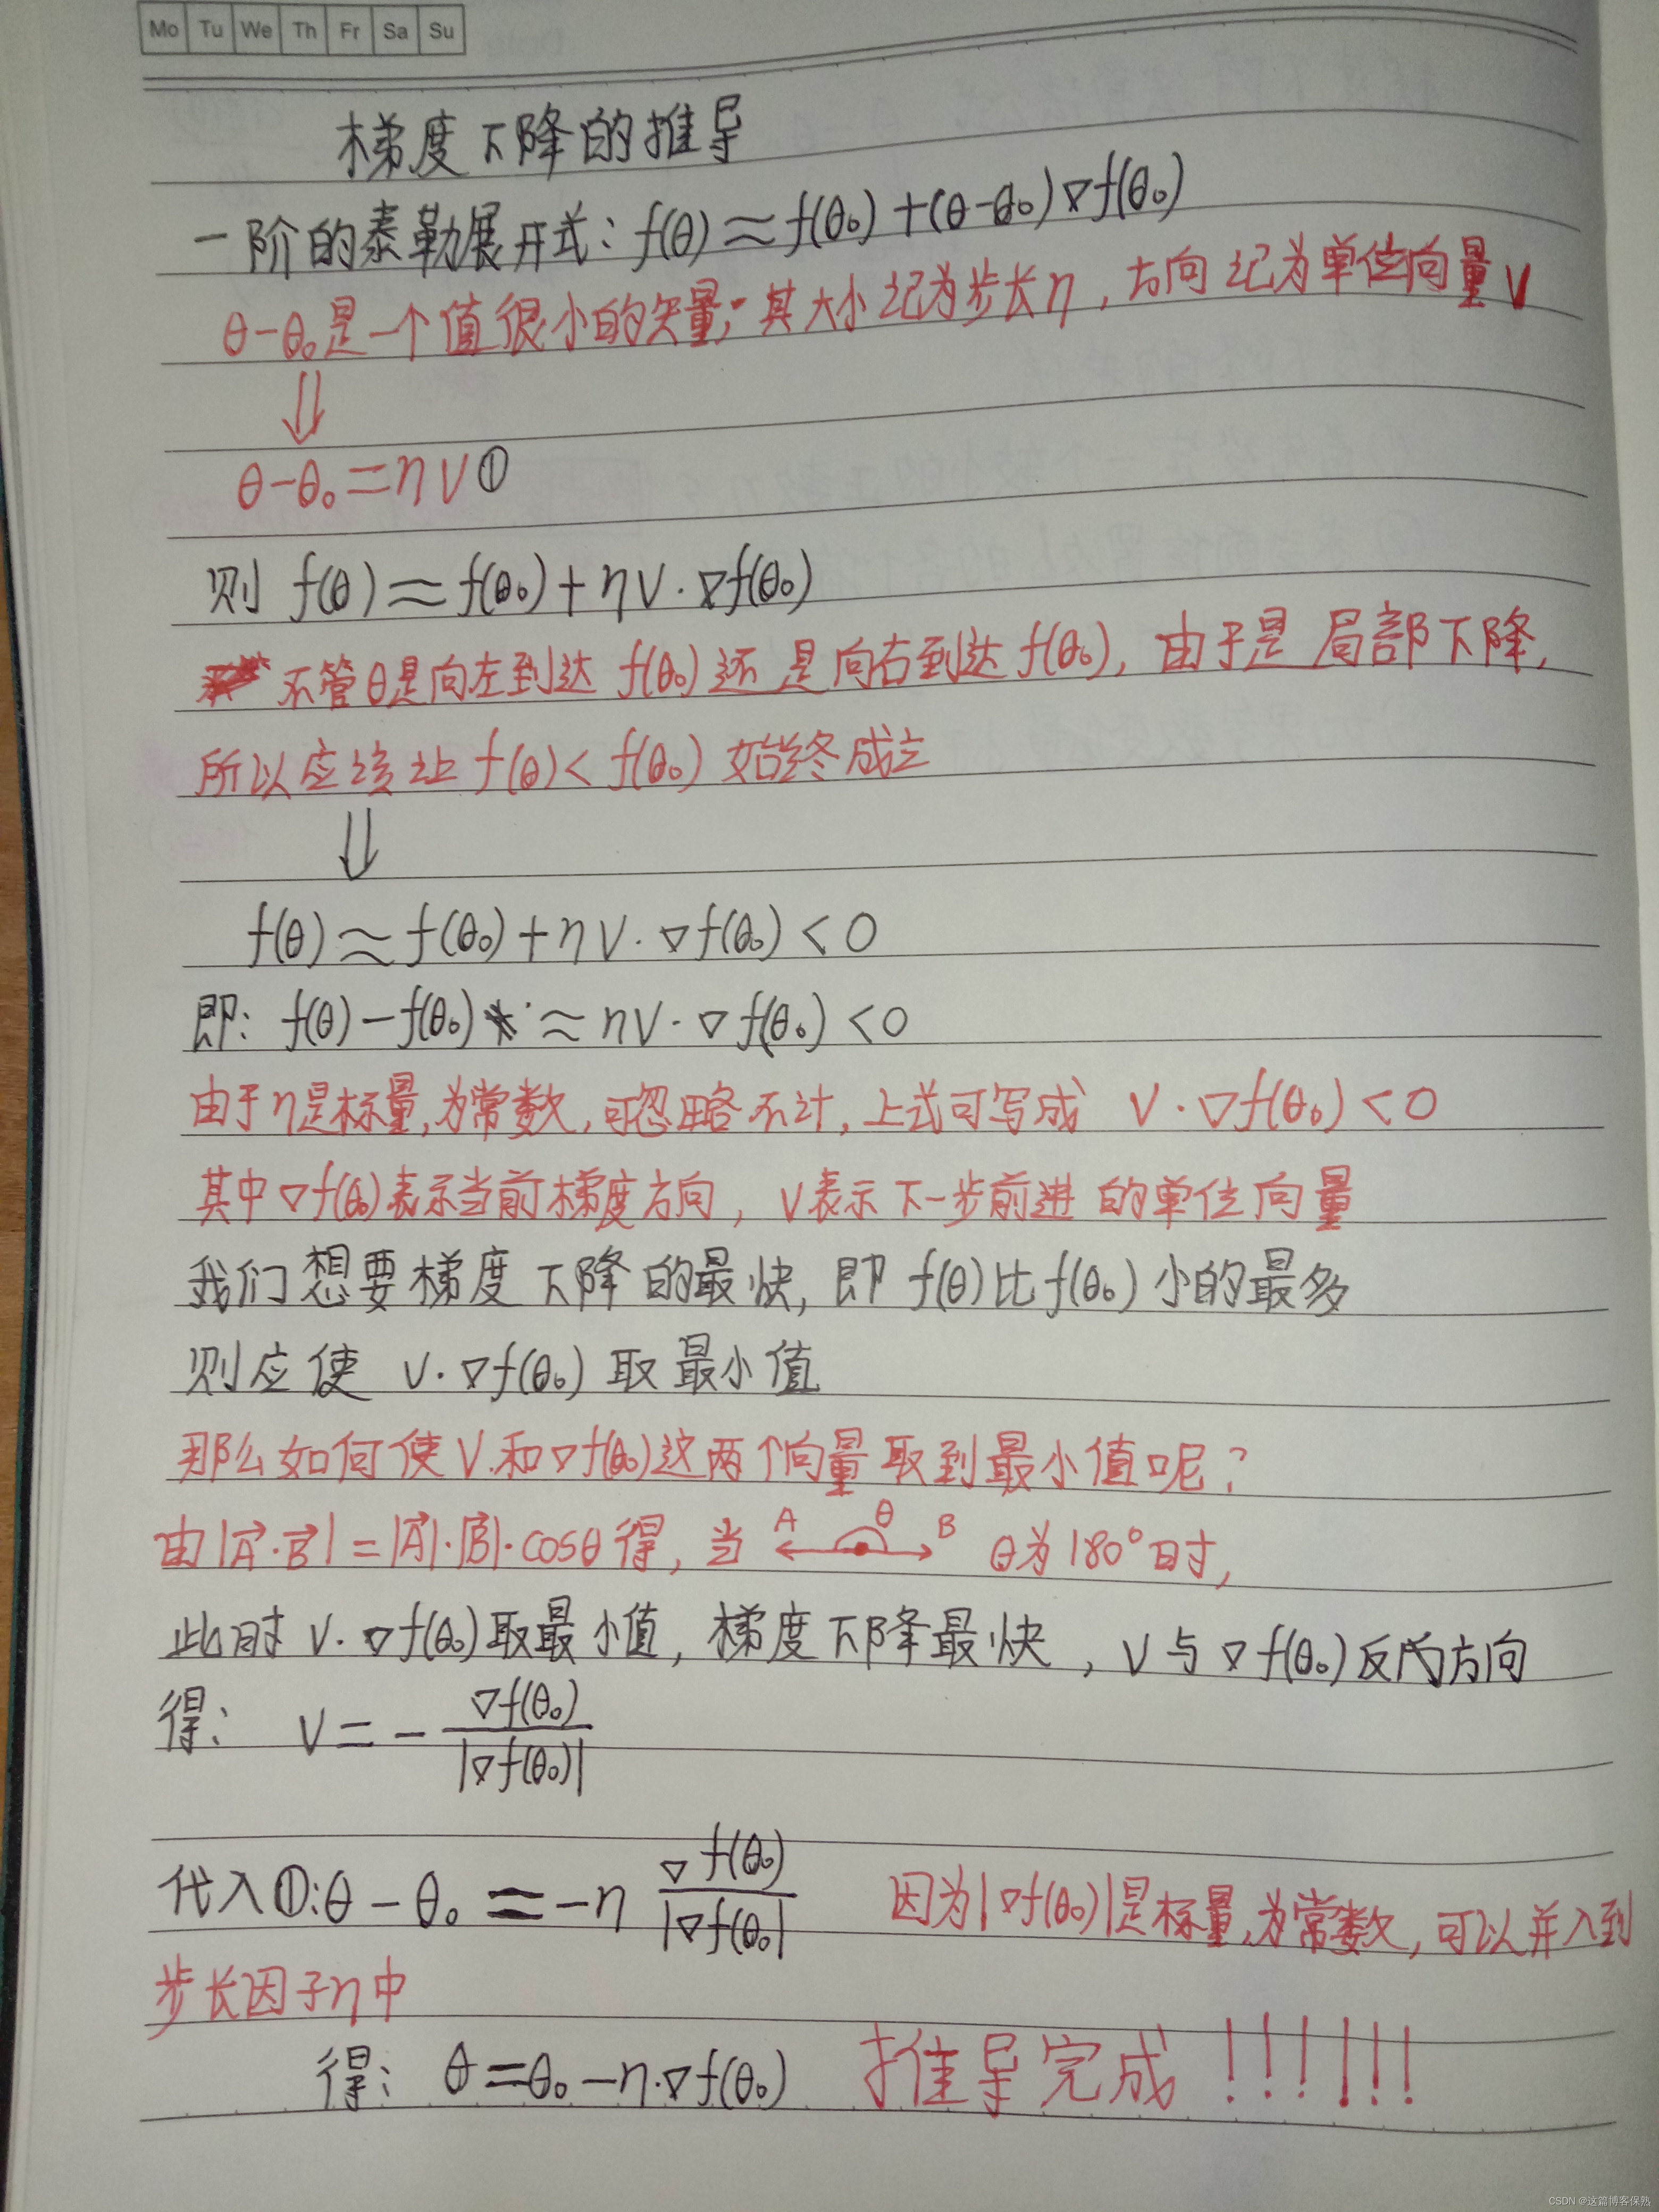 Mo Tu We Th Fr Sa Su
梯度下降的推导
一阶的泰勒展开式: f(θ)≈f(θ₀)+(θ-θ₀)▽f(θ₀)
θ-θ₀是一个值很小的矢量,其大小记为步长η,方向记为单位向量V
⇓
θ-θ₀=ηV①
则 f(θ)≈f(θ₀)+ηV·▽f(θ₀)
不管θ是向左到达 f(θ₀)还是向右到达f(θ₀),由于是局部下降,
所以应该让 f(θ)<f(θ₀) 始终成立
⇓
f(θ)≈f(θ₀)+ηV·▽f(θ₀)<0
即: f(θ)-f(θ₀)≈ηV·▽f(θ₀)<0
由于η是标量,为常数,可忽略不计,上式可写成 V·▽f(θ₀)<0
其中▽f(θ₀)表示当前梯度方向, V表示下一步前进的单位向量
我们想要梯度下降的最快,即 f(θ)比f(θ₀)小的最多
则应使 V·▽f(θ₀) 取最小值
那么如何使V和▽f(θ₀)这两个向量取到最小值呢?
由|A⃗·B⃗|=|A⃗|·|B⃗|·cosθ得,当 A θ B θ为180°时,
此时 V·▽f(θ₀)取最小值,梯度下降最快, V与▽f(θ₀)反方向
得: V=-▽f(θ₀)/|▽f(θ₀)|
代入①:θ-θ₀=-η ▽f(θ₀)/|▽f(θ₀| 因为|▽f(θ₀)|是标量,为常数,可以并入到
步长因子η中
得: θ=θ₀-η·▽f(θ₀) 推导完成!!!!!!
CSDN @这篇博客保熟